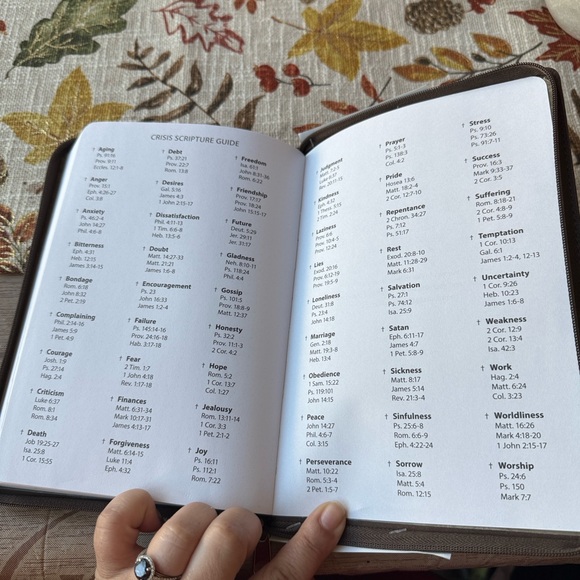 CRISIS SCRIPTURE GUIDE
† Aging
Ps. 91:16
Prov. 9:11
Eccles. 12:1-8
† Anger
Prov. 15:1
Eph. 4:26-27
Col. 3:8
† Anxiety
Ps. 46:2-4
John 14:27
Phil. 4:6-8
† Bitterness
Eph. 4:31
Heb. 12:15
James 3:14-15
† Bondage
Rom. 6:18
John 8:32
2 Pet. 2:19
† Complaining
Phil. 2:14-16
James 5:9
1 Pet. 4:9
† Courage
Josh. 1:9
Ps. 27:14
Hag. 2:4
† Criticism
Luke 6:37
Rom. 8:1
Rom. 8:34
† Death
Job 19:25-27
Isa. 25:8
1 Cor. 15:55
† Debt
Ps. 37:21
Prov. 22:7
Rom. 13:8
† Desires
Gal. 5:16
James 4:3
1 John 2:15-17
† Dissatisfaction
Phil. 4:11-13
1 Tim. 6:6-8
Heb. 13:5-6
† Doubt
Matt. 14:27-33
Matt. 21:21
James 1:6-8
† Encouragement
Ps. 23
John 16:33
James 1:2-4
† Failure
Ps. 145:14-16
Prov. 24:16-18
Hab. 3:17-18
† Fear
2 Tim. 1:7
1 John 4:18
Rev. 1:17-18
† Finances
Matt. 6:31-34
Mark 10:17-31
James 4:13-17
† Forgiveness
Matt. 6:14-15
Luke 11:4
Eph. 4:32
† Freedom
Isa. 61:1
John 8:31-36
Rom. 6:22
† Friendship
Prov. 17:17
Prov. 18:24
John 15:13-15
† Future
Deut. 5:29
Jer. 29:11
Jer. 31:17
† Gladness
Neh. 8:10-11
Ps. 118:24
Phil. 4:4
† Gossip
Ps. 101:5
Prov. 18:8-9
Matt. 12:37
† Honesty
Ps. 32:2
Prov. 11:1-3
2 Cor. 4:2
† Hope
Rom. 5:2
1 Cor. 13:7
Col. 1:27
† Jealousy
Rom. 13:11-14
1 Cor. 3:3
1 Pet. 2:1-2
† Joy
Ps. 16:11
Ps. 112:1
Rom. 7:22
† Judgment
Luke 6:37
Rev. 20:11-15
† Kindness
Eph. 4:32
2 Thess. 5:15
1 Tim. 2:24
† Laziness
Prov. 6:6
Prov. 10:4-5
Prov. 12:24
† Lies
Exod. 20:16
Prov. 6:12-19
Prov. 19:5-9
† Loneliness
Deut. 31:8
Ps. 23:4
John 14:18
† Marriage
Gen. 2:18
Matt. 19:3-8
Heb. 13:4
† Obedience
1 Sam. 15:22
Ps. 119:101
John 14:15
† Peace
John 14:27
Phil. 4:6-7
Col. 3:15
† Perseverance
Matt. 10:22
Rom. 5:3-4
2 Pet. 1:5-7
† Prayer
Ps. 5:1-3
Ps. 138:3
Col. 4:2
† Pride
Hosea 13:6
Matt. 18:2-4
2 Cor. 12:7-10
† Repentance
2 Chron. 34:27
Ps. 7:12
Ps. 51:17
† Rest
Exod. 20:8-10
Matt. 11:28-29
Mark 6:31
† Salvation
Ps. 27:1
Ps. 74:12
Isa. 25:9
† Satan
Eph. 6:11-17
James 4:7
1 Pet. 5:8-9
† Sickness
Matt. 8:17
James 5:14
Rev. 21:3-4
† Sinfulness
Ps. 25:6-8
Rom. 6:6-9
Eph. 4:22-24
† Sorrow
Isa. 25:8
Matt. 5:4
Rom. 12:15
† Stress
Ps. 9:10
Ps. 73:26
Ps. 91:7-11
† Success
Prov. 16:3
Mark 9:33-37
2 Cor. 3:5
† Suffering
Rom. 8:18-21
2 Cor. 4:8-9
1 Pet. 5:8-9
† Temptation
1 Cor. 10:13
Gal. 6:1
James 1:2-4, 12-13
† Uncertainty
1 Cor. 9:26
Heb. 10:23
James 1:6-8
† Weakness
2 Cor. 12:9
2 Cor. 13:4
Isa. 42:3
† Work
Hag. 2:4
Matt. 6:24
Col. 3:23
† Worldliness
Matt. 16:26
Mark 4:18-20
1 John 2:15-17
† Worship
Ps. 24:6
Ps. 150
Mark 7:7